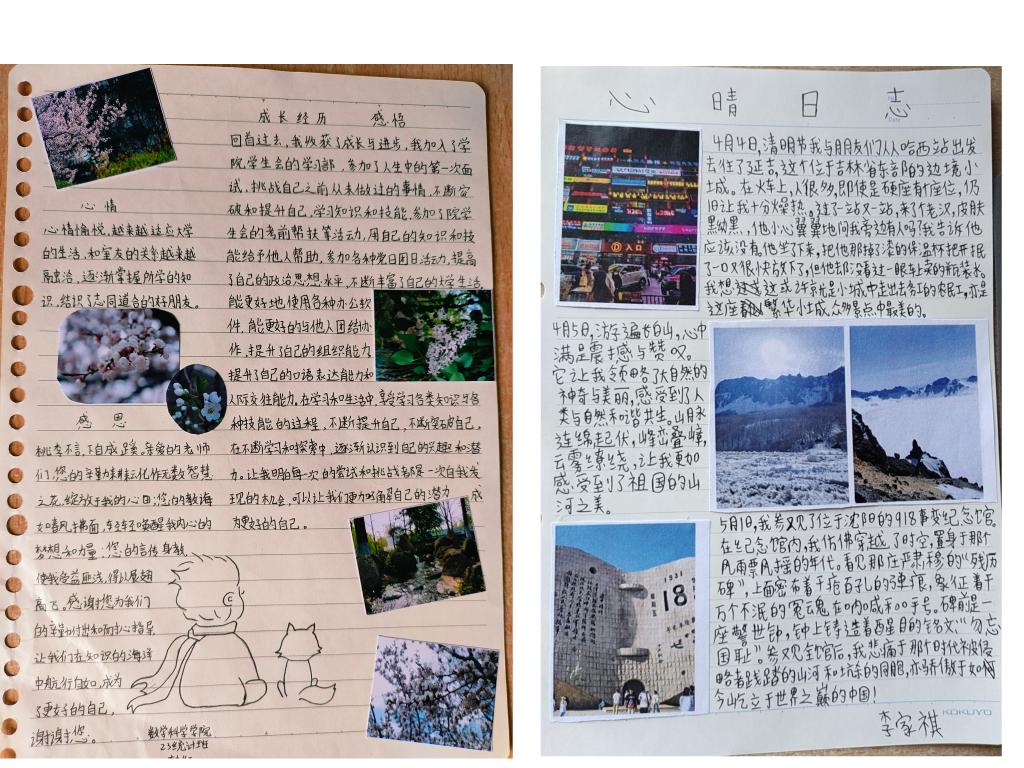 成长经历 感悟
回首过去，我收获了成长与进步，我加入了学
院学生会的学习部，参加了人生中的第一次面
试，挑战自己之前从未做过的事情，不断突
破和提升自己，学习知识和技能，参加了院学
生会的考前帮扶等活动，用自己的知识和技
能给予他人帮助，参加各种党日团日活动，提高
了自己的政治思想水平，不断丰富了自己的大学生活，
能更好地使用各种办公软
件，能更好的与他人团结协
作，提升了自己的组织能力
提升了自己的口语表达能力和
人际交往能力。在学习和生活中，享受学习各类知识与各
种技能的过程，不断提升自己，不断突破自己。
在不断学习和探索中，逐渐认识到自己的兴趣和潜
力。让我明白每一次的尝试和挑战都是一次自我发
现的机会，可以让我们更加了解自己的潜力，成
为更好的自己。
心情
心情愉悦，越来越适应大学
的生活，和室友的关系越来越
融洽，逐渐掌握所学的知
识，结识了志同道合的好朋友。
感恩
桃李不言，下自成蹊。亲爱的老师
们，您的辛勤耕耘化作无数智慧
之花，绽放于我的心田，您的教诲
如春风拂面，轻轻唤醒我内心的
梦想和力量，您的言传身教
使我受益匪浅，得以展翅
高飞。感谢您为我们
的辛勤付出和耐心指导，
让我们在知识的海洋
中航行自如，成为
了更好的自己，
谢谢您。
数学科学学院
23统计班
心晴日志
4月4日，清明节我与朋友们从哈西站出发
去往了延吉。这个位于吉林省东部的边境小
城。在火车上，人很多，即使是硬座有座位，仍
旧让我十分燥热。过了一站又一站，来了位老汉，皮肤
黝黑，他小心翼翼地问我旁边有人吗？我告诉他
应该没有，他坐了下来，把他那掉了漆的保温杯把开抿
了一口又很快放下了，但他却盯着过一眼车上买的瓶装水。
我想，这或许就是小城中走出去务工的农民工，亦是
这座繁华小城众多景点中最美的。
入口
4月5日，游遍长白山，心中
满是震撼与赞叹。
它让我领略了大自然的
神奇与美丽，感受到了人
类与自然和谐共生。山脉
连绵起伏，峰峦叠嶂，
云雾缭绕，让我更加
感受到了祖国的山
河之美。
5月1日，我参观了位于沈阳的918事变纪念馆。
在纪念馆内，我仿佛穿越了时空，置身于那个
风雨飘摇的年代。看见那庄严肃穆的“残历
碑”，上面密布着千疮百孔的弹痕，象征着千
万个不泯的冤魂在呐喊和呼号。碑前是一
座警世钟，钟上铸造着醒目的铭文“勿忘
国耻”。参观全馆后，我悲痛于那个时代被侵
略者践踏的山河和坑杀的同胞，亦骄傲于如
今屹立于世界之巅的中国！
1931
18
李家祺
KOKUYO